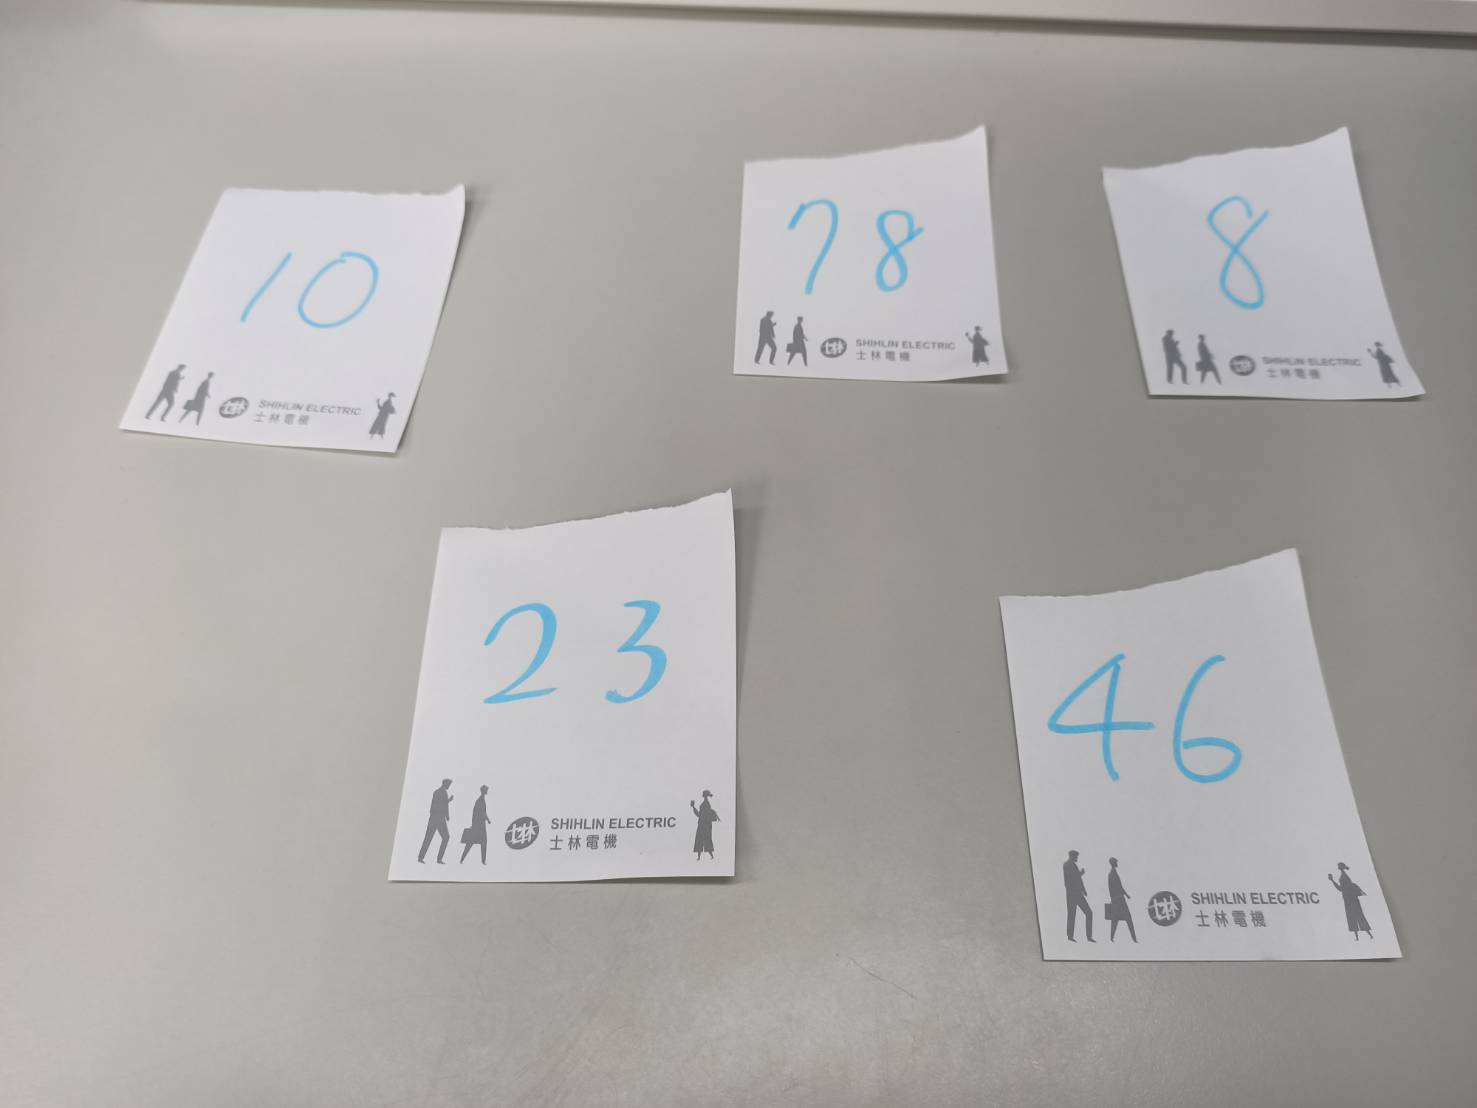 10
SHIHLIN ELECTRIC
士林電機
78
士林
SHIHLIN ELECTRIC
士林電機
8
士林
SHIHLIN ELECTRIC
士林電機
23
士林
SHIHLIN ELECTRIC
士林電機
46
士林
SHIHLIN ELECTRIC
士林電機